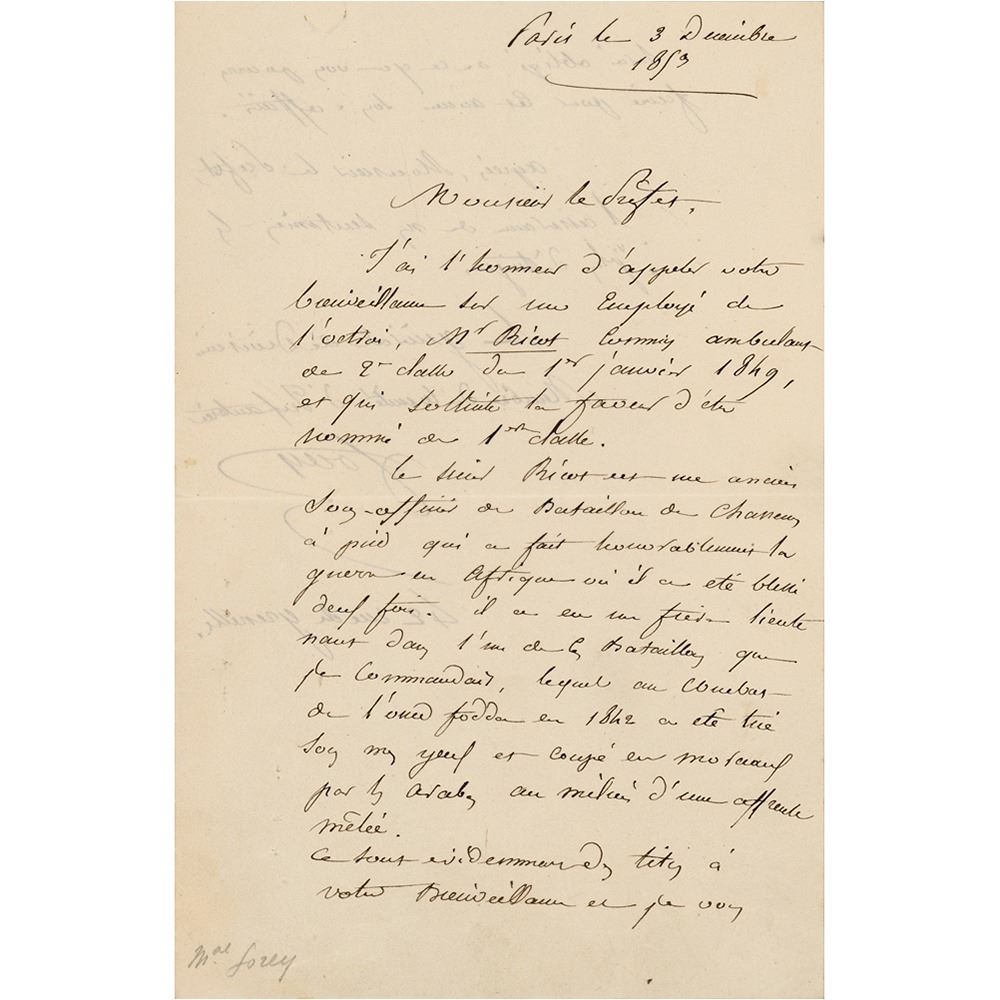 Paris le 3 Décembre
1853
Monsieur le Préfet,
J'ai l'honneur d'appeler votre
bienveillance sur un Employé de
l'octroi, Mr Ricot Commis ambulant
de 2e classe du 1er janvier 1849,
et qui sollicite la faveur d'être
nommé de 1ere classe.
Le sieur Ricot est un ancien
sous-officier de Bataillon de Chasseurs
à pied qui a fait honorablement la
guerre en Afrique où il a été blessé
deux fois. il a eu un frère lieute
nant dans l'un de les Bataillons que
je Commandais, lequel au Combat
de l'oued fodda en 1842 a été tué
sous mes yeux et coupé en morceaux
par les arabes au milieu d'une affreuse
mêlée.
Ce sont évidemment des titres à
votre Bienveillance et je vous
Mal forey